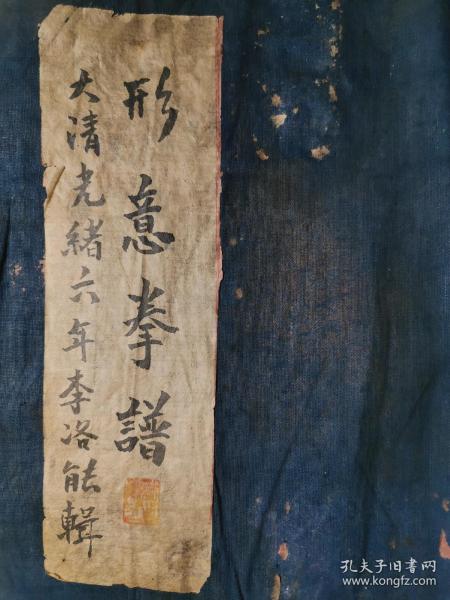 形意拳譜
大清光緒六年李洛能輯
孔夫子旧书网
www.kongfz.com